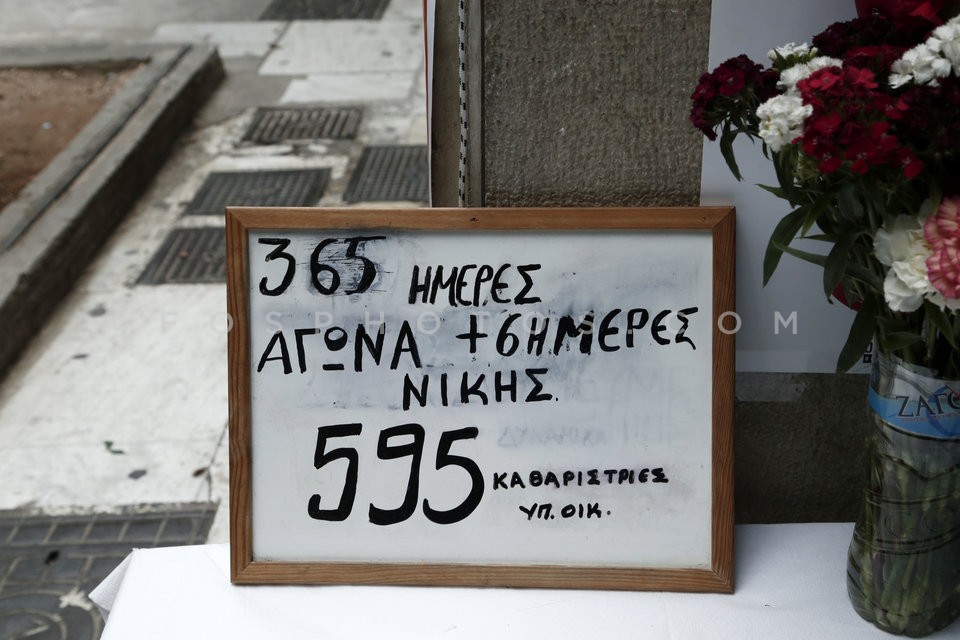 365 ΗΜΕΡΕΣ
ΑΓΩΝΑ +6 ΗΜΕΡΕΣ
ΝΙΚΗΣ.
595 ΚΑΘΑΡΙΣΤΡΙΕΣ
ΥΠ. ΟΙΚ.
ΖΑΓΟ
FOSPHOTOS.COM